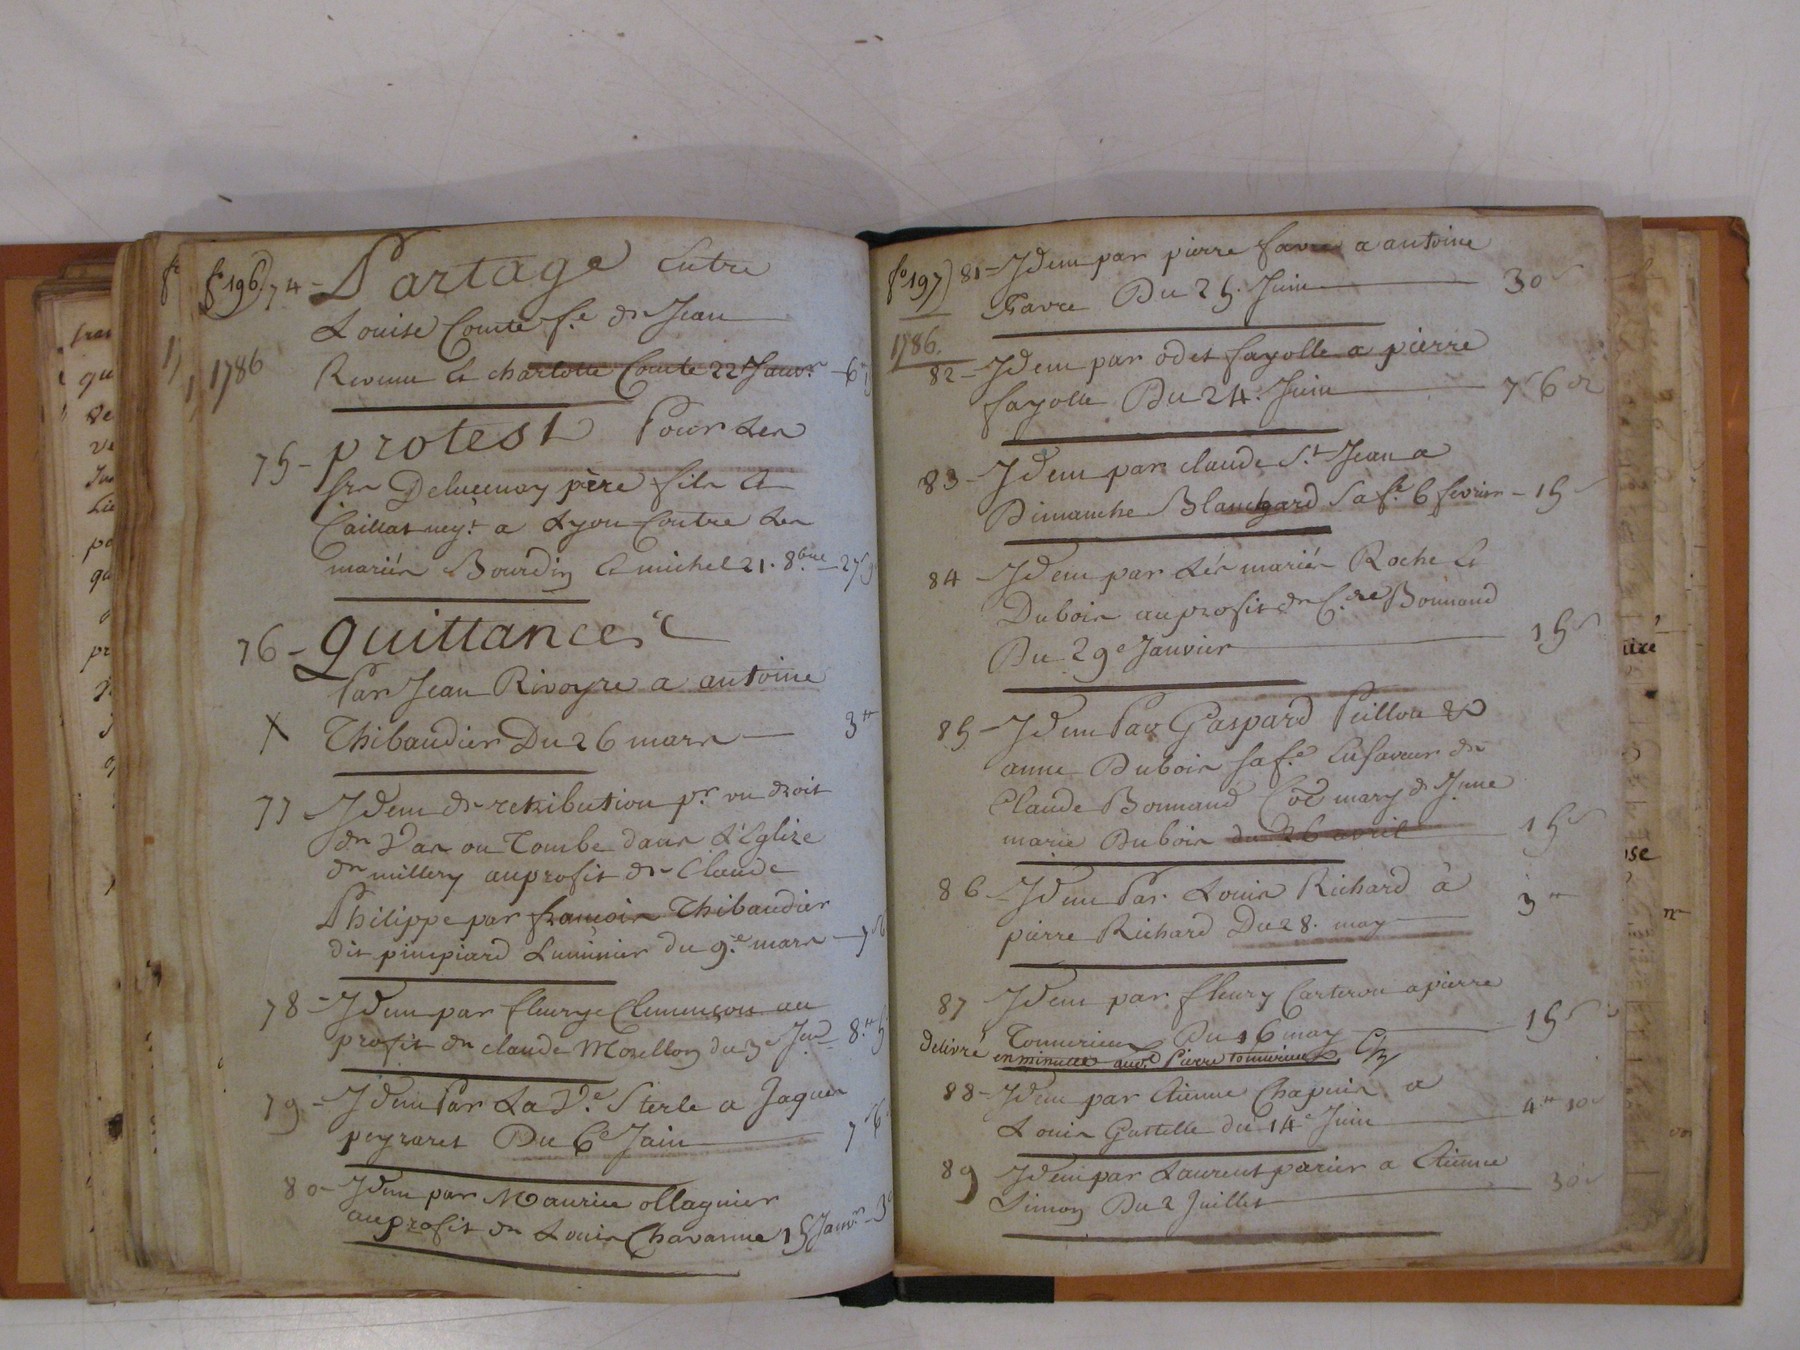 f.o 196) 74 - Partage Entre
Louise Comte f.e de Jean
1786 Revenu et charlotte Comte 22 Janv.r - 6
75 - protest Pour Les
srs Delucenay père fils et
Caillat neg.t a Lyon Contre Les
mariés Bourdin et michel 21. 8.bre - 27
76 - quittances
Par Jean Rivoyre a antoine
X Thibaudier Du 26 mars - 3 tt
77 Idem de retribution p.r un droit
de Vas ou Tombe dans L'Eglize
de millery au profit de Claude
Philippe par françois Thibaudier
dit pimpiard Luminier du 9.e mars - 7
78 - Idem par fleurye Clemençon au
profit de claude Morellon du 3e 8 tt
79 - Idem Par La V.e Sterle a Jaques
peyraret Du 6e Juin 7
80 - Idem par Maurice ollagnier
au profit de Louis Chavanne 15 Janv.r - 3
f.o 197) 81 = Idem par pierre favre a antoine
favre Du 25. Juin 30 s
1786.
82 - Idem par odet fayolle a pierre
fayolle Du 24. Juin 7 s 6 d
83 - Idem par claude S.t Jean a
Dimanche Blanchard Sa f.e 6 fevrier - 15 s
84 - Idem par Les mariés Roche et
Dubois au profit de C.de Bonnand
Du 29e Janvier 15 s
85 - Idem Par Gaspard Pillon &
anne Dubois sa f.e En faveur de
Claude Bonnand Co.e mary de
marie Dubois du 26 avril 15 s
86 - Idem Par Louis Richard à
pierre Richard Du 28. may 3 tt
87 Idem par fleury Carteron a pierre
Tonnerieux Du 16 may 15 s
delivré en minutte aud. Pierre tonnerieux
88 - Idem par Etienne Chapuis a
Louis Gattelle du 14e Juin 4 tt 10 s
89 Idem par Laurent parier a Etienne
Simon Du 2 Juillet 30 s